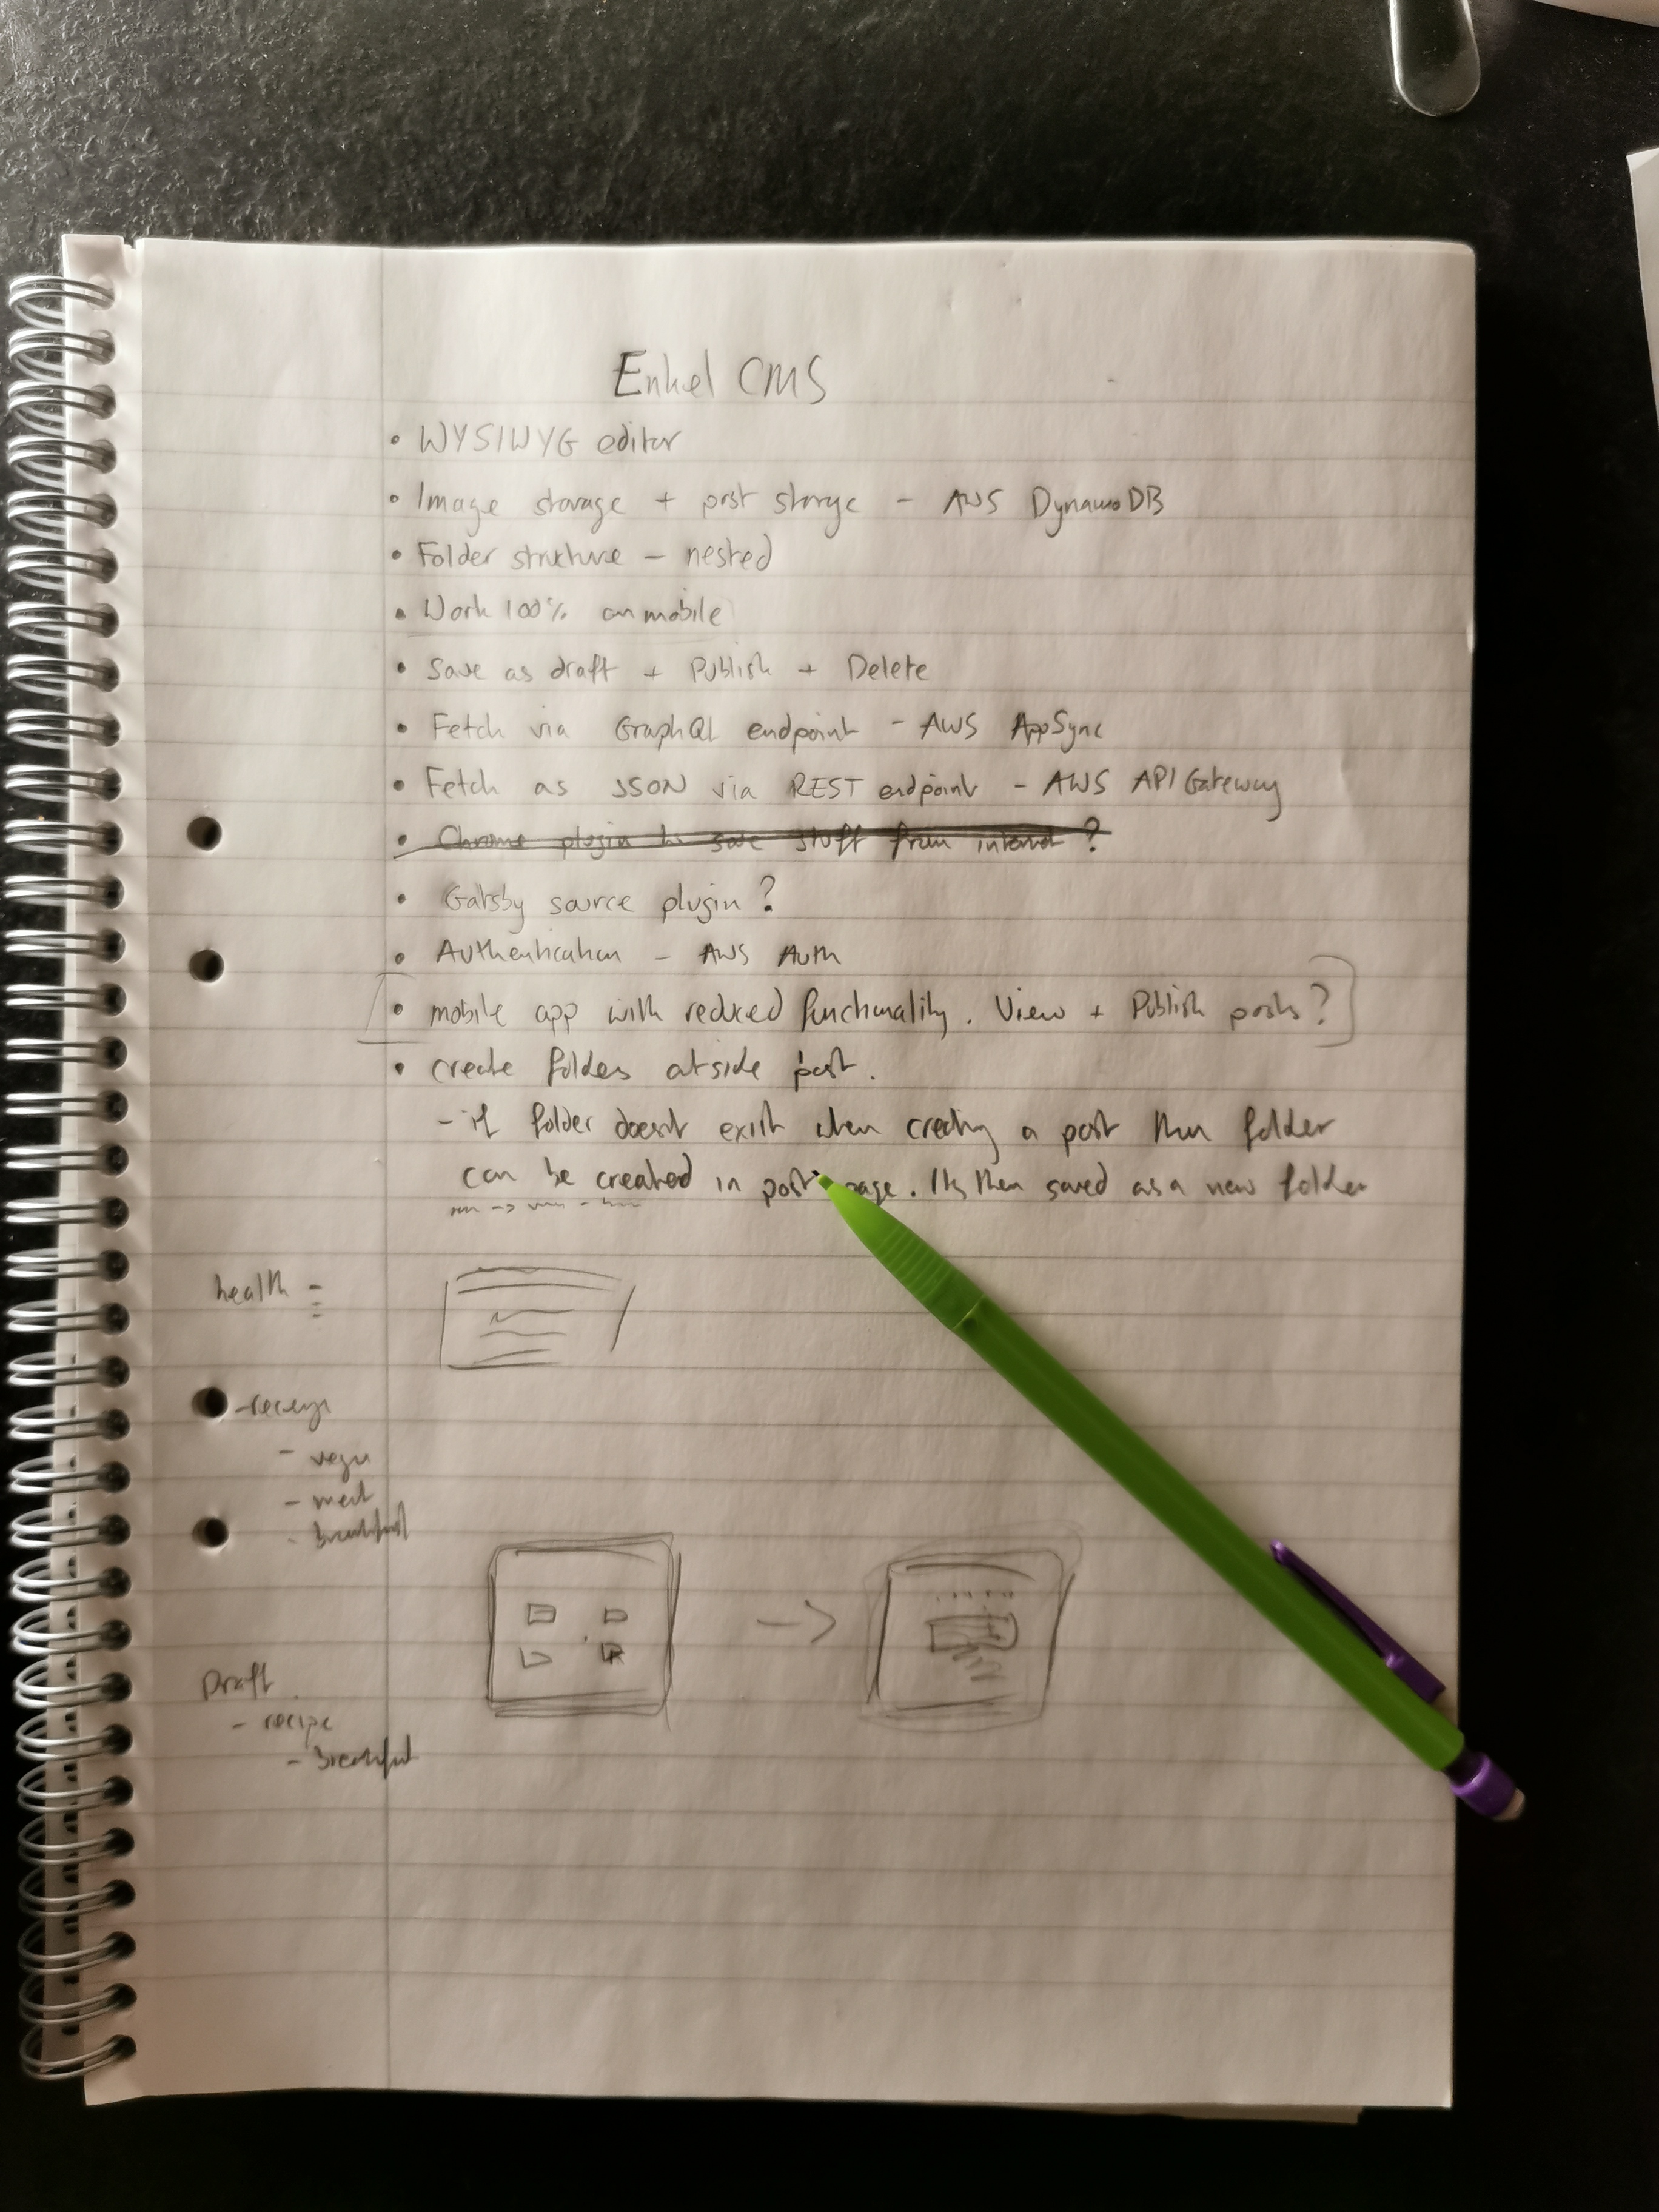 Enkel CMS
• WYSIWYG editor
• Image storage + post storage - AWS DynamoDB
• Folder structure - nested
• Work 100% on mobile
• Save as draft + Publish + Delete
• Fetch via GraphQL endpoint - AWS AppSync
• Fetch as JSON via REST endpoint - AWS API Gateway
• Chrome plugin to save stuff from internet?
• Gatsby source plugin?
• Authentication - AWS Auth
[• mobile app with reduced functionality. View + Publish posts?]
• create folders outside post.
- if folder doesnt exist when creating a post then folder
can be created in post page. Its then saved as a new folder
health -
- vegan
- meat
- breakfast
Draft
- recipe
- breakfast